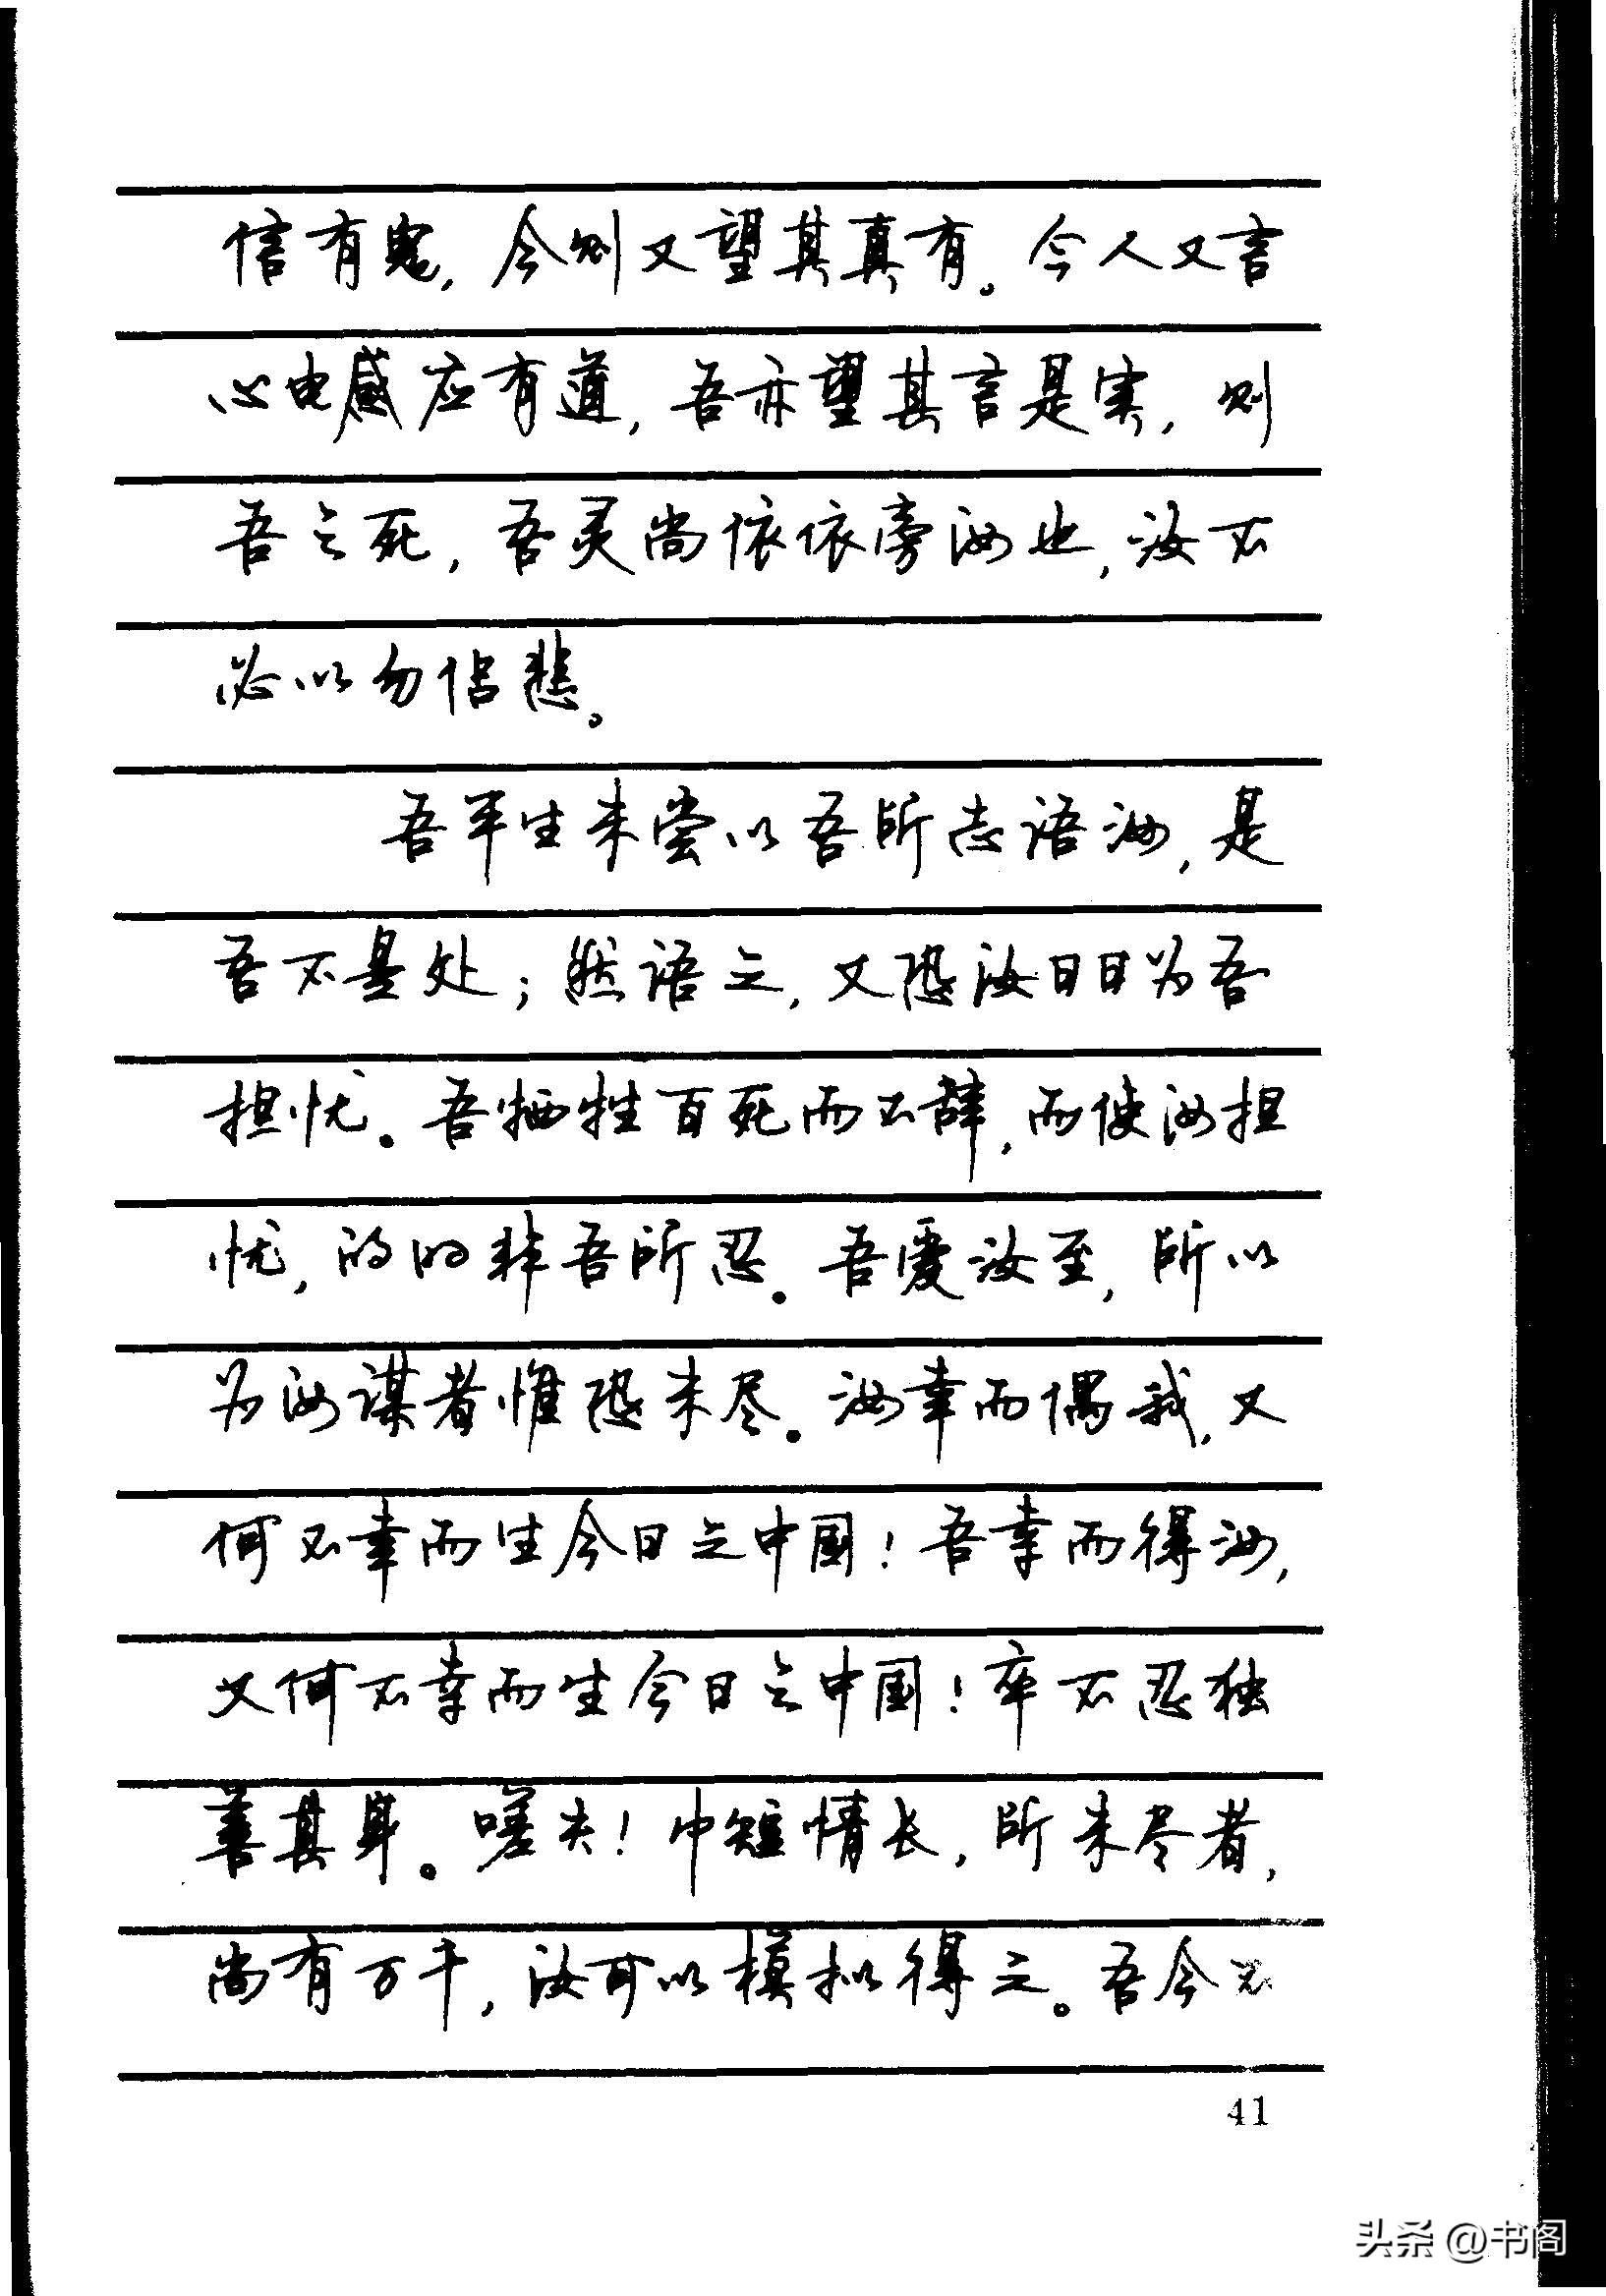 信有鬼，今则又望其真有。今人又言
心电感应有道，吾亦望其言是实，则
吾之死，吾灵尚依依旁汝也，汝不
必以勿侣悲。
吾平生未尝以吾所志语汝，是
吾不是处；然语之，又恐汝日日为吾
担忧。吾牺牲百死而不辞，而使汝担
忧，的的非吾所忍。吾爱汝至，所以
为汝谋者惟恐未尽。汝幸而偶我，又
何不幸而生今日之中国！吾幸而得汝，
又何不幸而生今日之中国！卒不忍独
善其身。嗟夫！巾短情长，所未尽者，
尚有万千，汝可以模拟得之。吾今不
41
头条@书阁